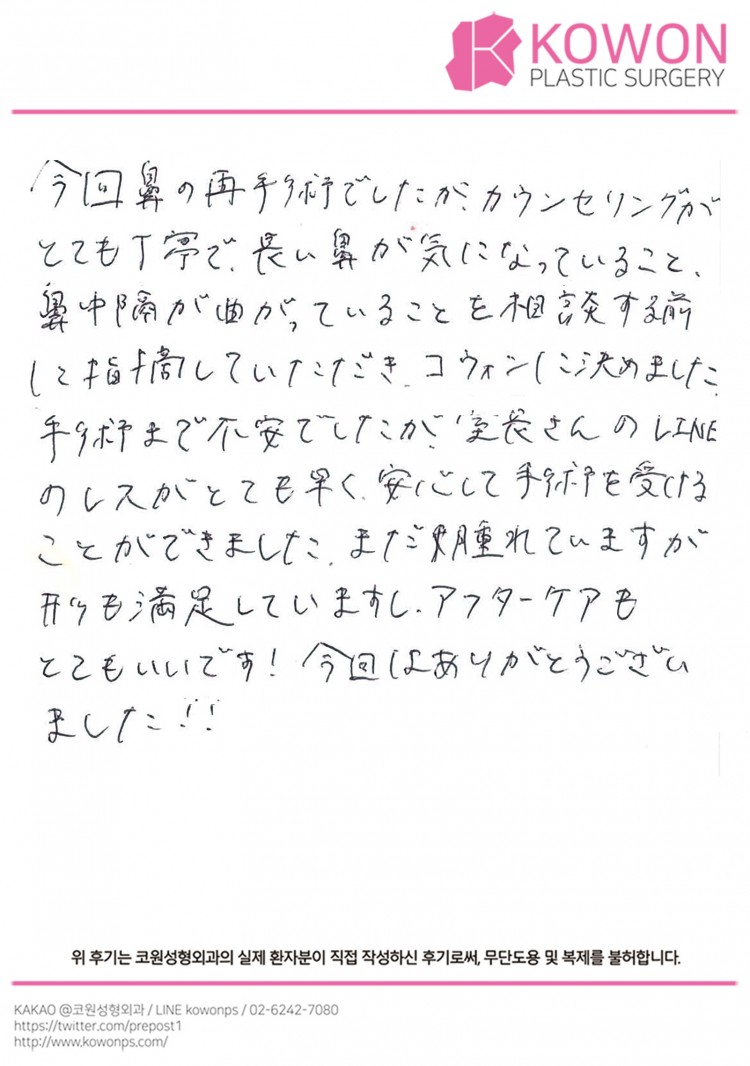 KOWON
PLASTIC SURGERY
今回鼻の再手術でしたが、カウンセリングが
とても丁寧で、長い鼻が気になっていること、
鼻中隔が曲がっていることを相談する前
に指摘していただき、コウォンに決めました。
手術まで不安でしたが、室長さんのLINE
のレスがとても早く、安心して手術を受ける
ことができました。まだ腫れていますが
形も満足していますし、アフターケアも
とてもいいです! 今回はありがとうござい
ました!!
위 후기는 코원성형외과의 실제 환자분이 직접 작성하신 후기로써, 무단도용 및 복제를 불허합니다.
KAKAO @코원성형외과 / LINE kowonps / 02-6242-7080
https://twitter.com/prepost1
http://www.kowonps.com/